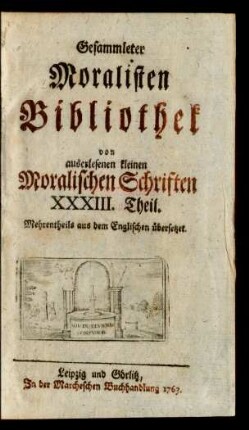 Gesammleter
Moralisten
Bibliothek
von
auserlesenen kleinen
Moralischen Schriften
XXXIII. Theil.
Mehrentheils aus dem Englischen übersetzet.
Leipzig und Görlitz,
In der Marcheschen Buchhandlung 1767.